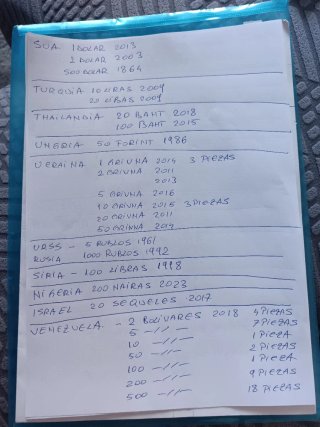 SUA 1 DOLAR 2013
1 DOLAR 2003
500 DOLAR 1864
TURQUIA 10 LIRAS 2009
20 LIBAS 2009
THAILANDIA 20 BAHT 2018
100 BAHT 2015
UNGRIA 50 FORINT 1986
UCRAINA 1 GRIVNA 2014 3 PIEZAS
2 GRIVNA 2011
2013
5 GRIVNA 2016
10 GRIVNA 2015 3 PIEZAS
20 GRIVNA 2011
50 GRINNA 2014
URSS - 5 RUBLOS 1961
RUSIA 1000 RUBLOS 1992
SIRIA - 100 LIBRAS 1998
NIGERIA 200 NAIRAS 2023
ISRAEL 20 SEQUELES 2017
VENEZUELA - 2 BOLIVARES 2018 4 PIEZAS
5 -//- 7 PIEZAS
10 -//- 1 PIEZA
50 -//- 2 PIEZAS
100 -//- 1 PIEZA
200 -//- 9 PIEZAS
500 -//- 18 PIEZAS